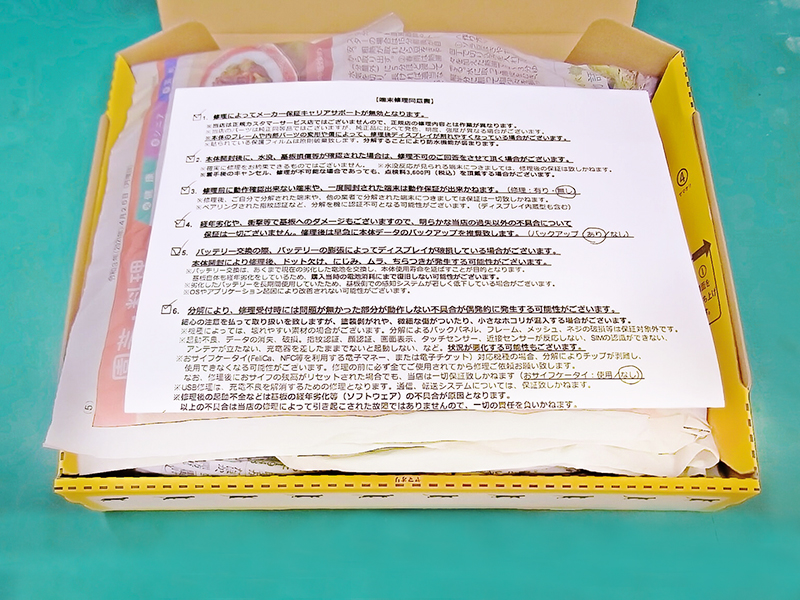 【端末修理同意書】
1. 修理によってメーカー保証キャリアサポートが無効となります。
※当店は正規カスタマーサービス店ではございませんので、正規店の修理内容とは作業が異なります。
※当店のパーツは純正同等品ではございますが、純正品に比べて発色、明度、強度が異なる場合がございます。
※本体のフレームや内部パーツの変形や傷によって、修理後ディスプレイが割れやすくなっている場合がございます。
※貼られている保護フィルムは原則破棄致します、分解することにより防水機能が弱まります。
2. 本体開封後に、水没、基板損傷等が確認された場合は、修理不可のご回答をさせて頂く場合がございます。
※確実に修理をお約束できるものではございません。 ※水没反応が見られる端末につきましては、修理後の保証は致しかねます。
※着手後のキャンセル、修理が不可能な場合であっても、点検料3,600円（税込）を頂戴する場合がございます。
3. 修理前に動作確認出来ない端末や、一度開封された端末は動作保証が出来かねます。（修理：有り・無し）
※修理後、ご自分で分解された端末や、他の業者で分解された端末につきましては保証は一切致しかねます。
※ペアリングされた指紋認証など、分解を機に認証不可となる可能性がございます。（ディスプレイ内蔵型も含む）
4. 経年劣化や、衝撃等で基板へのダメージもございますので、明らかな当店の過失以外の不具合について
保証は一切ございません。修理後は早急に本体データのバックアップを推奨致します。（バックアップ あり／なし）
5. バッテリー交換の際、バッテリーの膨張によってディスプレイが破損している場合がございます。
本体開封により修理後、ドット欠け、にじみ、ムラ、ちらつきが発生する可能性がございます。
※バッテリー交換は、あくまで現在の劣化した電池を交換し、本体使用寿命を延ばすことが目的となります。
基板自体も経年劣化をしているため、購入当時の電池消耗にまで復旧しない可能性がございます。
※劣化したバッテリーを長期間使用していたため、基板側での感知システムが若しく低下している場合がございます。
※OSやアプリケーション起因により改善されない可能性がございます。
6. 分解により、修理受付時には問題が無かった部分が動作しない不具合が偶発的に発生する可能性がございます。
細心の注意を払って取り扱いを致しますが、塗装剥がれや、微細な傷がついたり、小さなホコリが混入する場合がございます。
※機種によっては、壊れやすい素材の場合がございます。分解によるバックパネル、フレーム、メッシュ、ネジの破損等は保証対象外です。
※起動不良、データの消失、破損、指紋認証、顔認証、画面表示、タッチセンサー、近接センサーが反応しない、SIMの認識ができない、
アンテナが立たない、充電器を差したままでないと起動しない、など。状況が悪化する可能性もございます。
※おサイフケータイ(FeliCa、NFC等を利用する電子マネー、または電子チケット）対応機種の場合、分解によりチップが剥離し、
使用できなくなる可能性がございます。修理の前に必ず全てご使用されてから修理ご依頼お願い致します。
なお、修理後におサイフの残高がリセットされた場合でも、当店は一切保証致しかねます（おサイフケータイ：使用／なし）
※USB修理は、充電不良を解消するための修理となります。通信、転送システムについては、保証致しかねます。
※修理後の起動不全などは基板の経年劣化等（ソフトウェア）の不具合が原因となります。
以上の不具合は当店の修理によって引き起こされた故障ではありませんので、一切の責任を負いかねます。
ヤマオリ
④
①